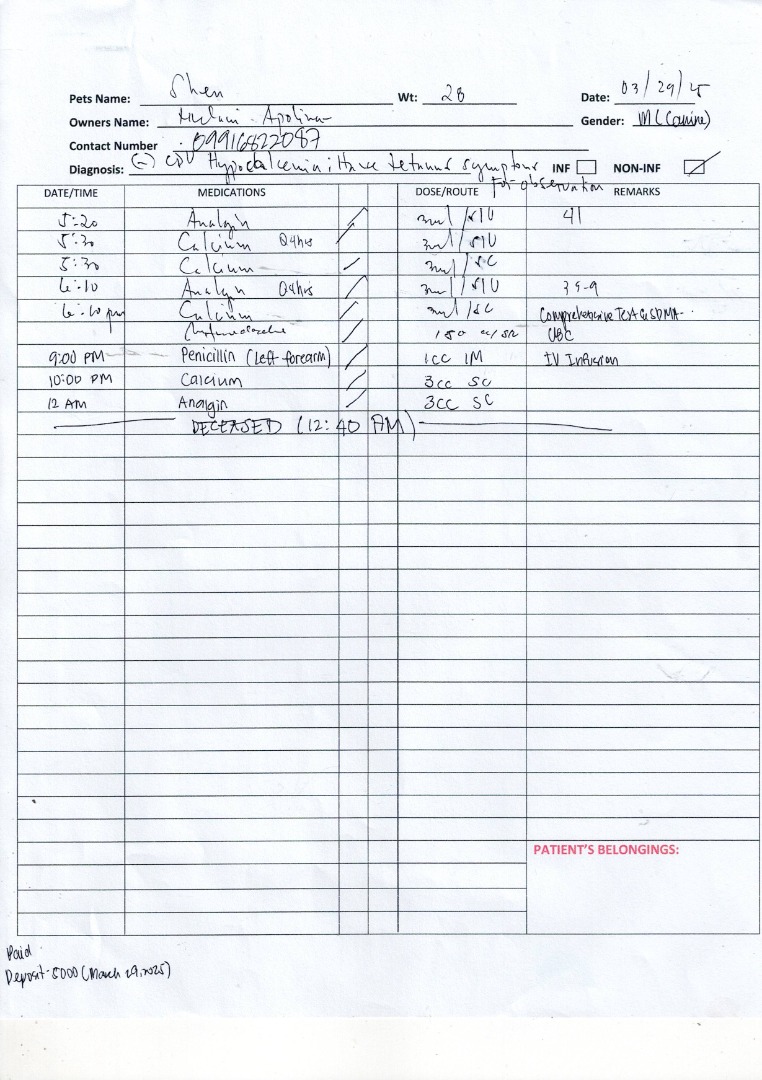 Pets Name: Shen Wt: 28 Date: 03/29/25
Owners Name: Apolinar Gender: M (Canine)
Contact Number 09916822087
Diagnosis: (-) CDV Hypocalcemia; Have tetanus symptoms INF NON-INF
for observation
DATE/TIME MEDICATIONS DOSE/ROUTE REMARKS
5:20 Analgin 3ml/SIV 41
5:30 Calcium Q4hrs 3ml/SIV
5:30 Calcium 3ml/SC
6:10 Analgin Q4hrs 3ml/SIV 39-9
6:10 pm Calcium 3ml/SC Comprehensive Test & SDMA
CBC
9:00 PM Penicillin (left forearm) 1CC IM IV Infusion
10:00 PM Calcium 3cc SC
12 AM Analgin 3CC SC
DECEASED (12:40 AM)
PATIENT'S BELONGINGS:
Paid
Deposit-5000 (March 29, 2025)